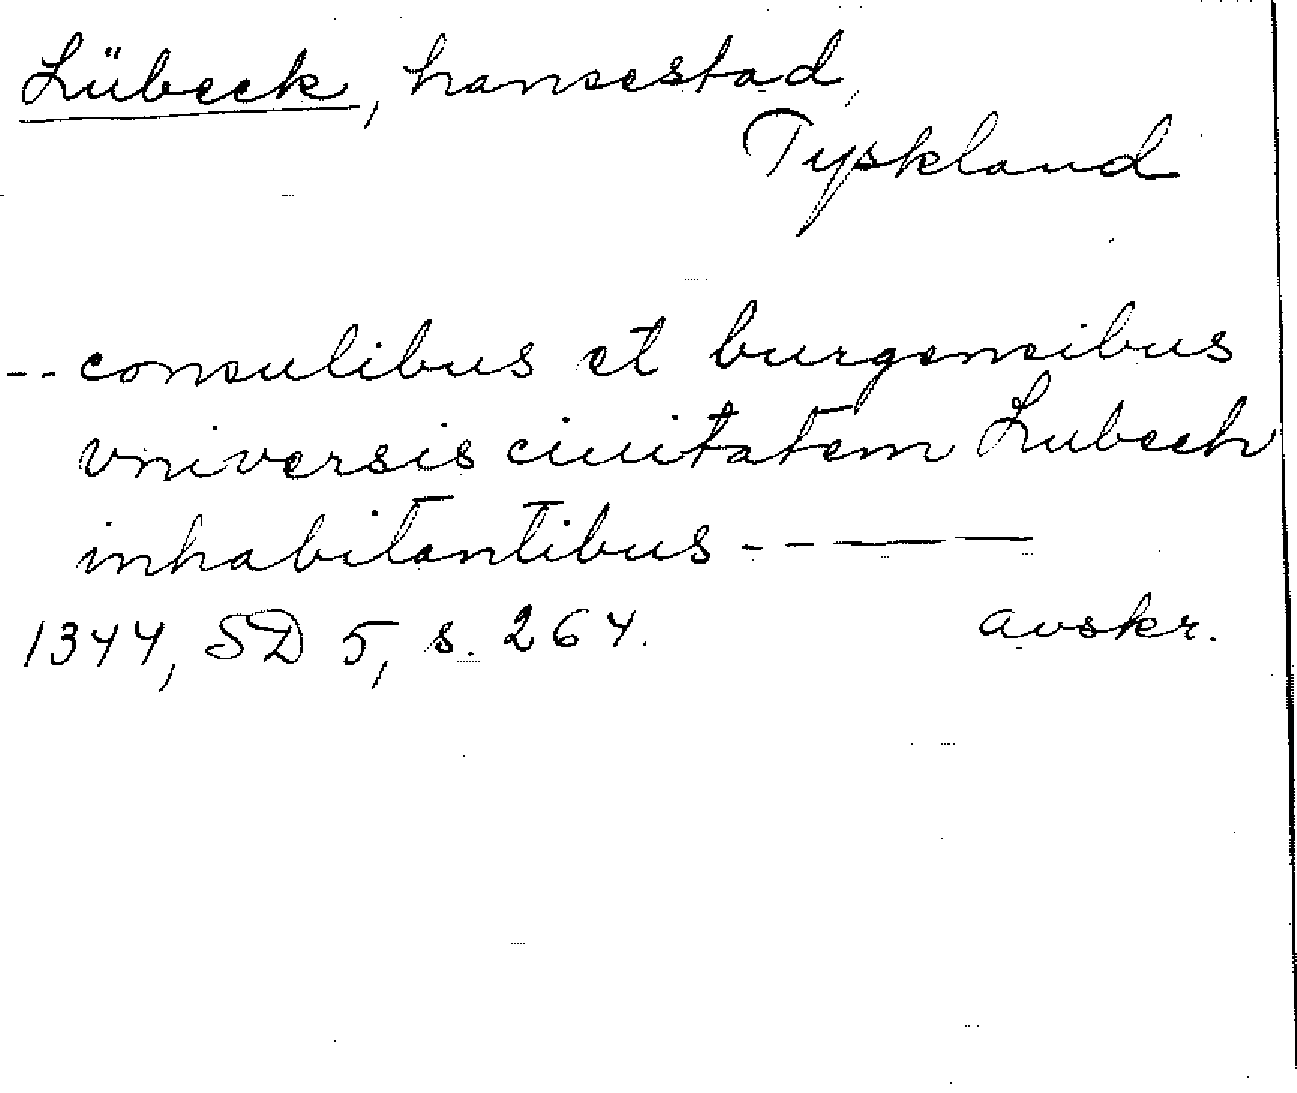 Lübeck, hansestad,
Tyskland
-- consulibus et burgensibus
vniversis ciuitatem Lubech
inhabitantibus -- — —
1344, SD 5, s. 264. avskr.